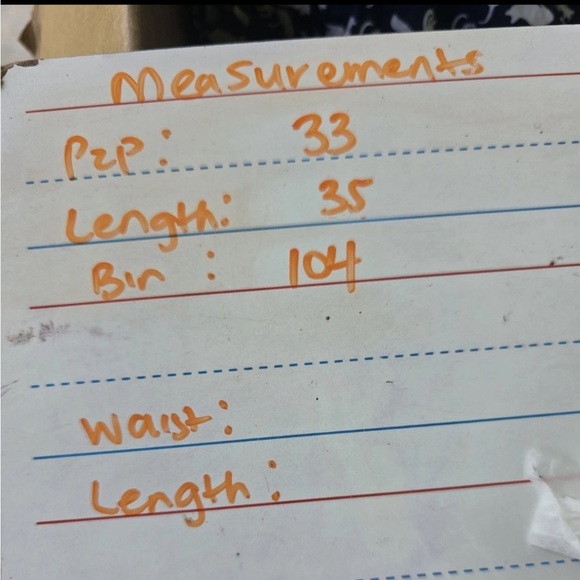 Measurements
P2P: 33
Length: 35
Bin: 104
Waist:
Length: